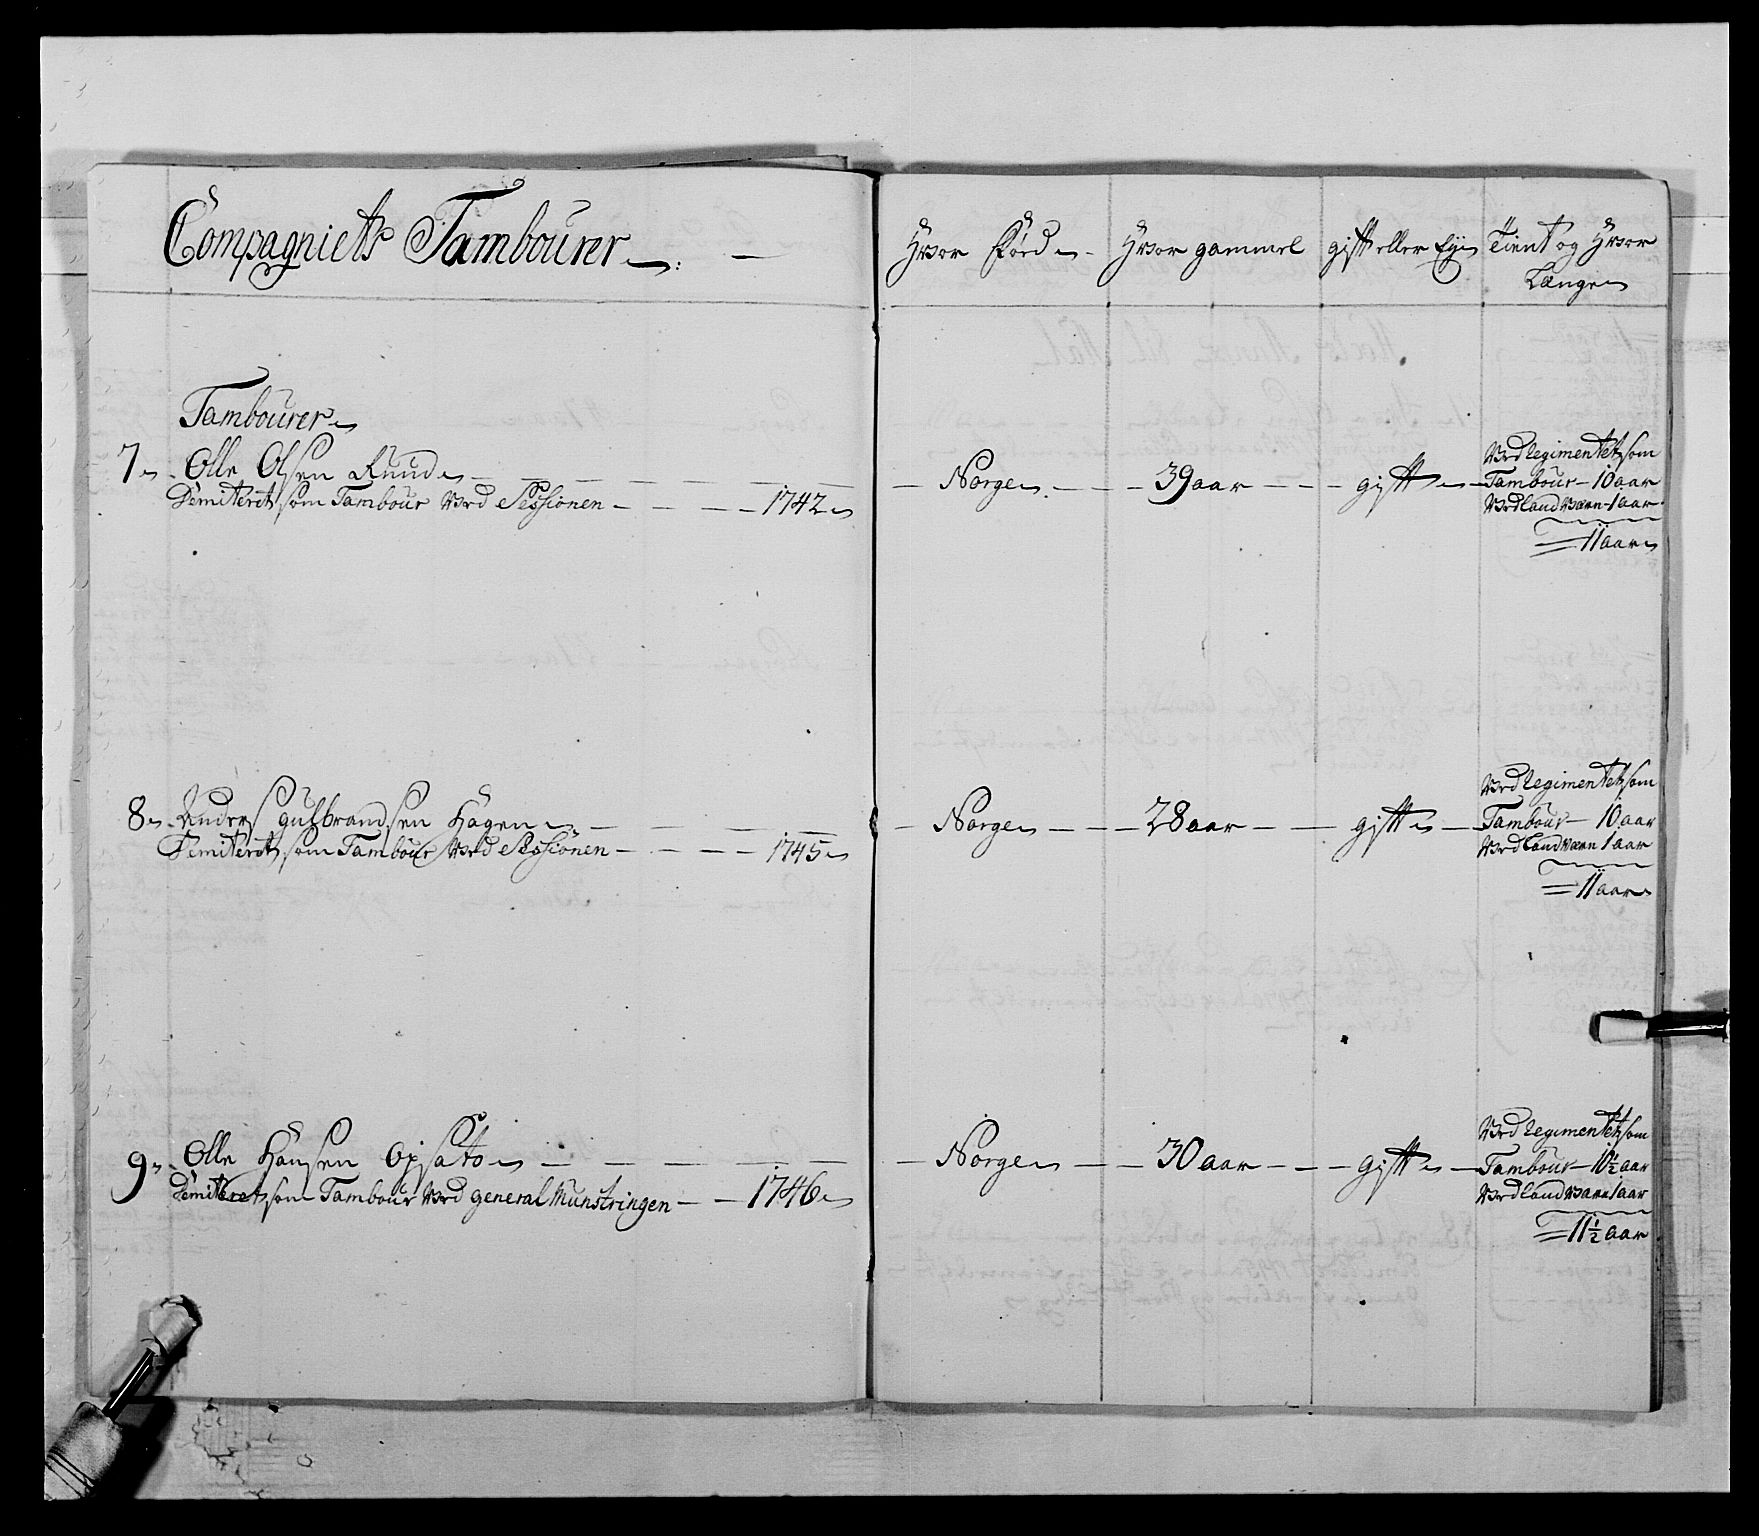 Compagniets Tambourer
Hvor Född
Hvor gammel
gift eller Ey
Tient og Hvor Længe
Tambourer
7 Olle Olsen Ruud
Demiteret som Tambour ved Sessionen - - - - 1742
Norge - - 39 aar - - - gift
ved Regimentet som
Tambour - 10 aar
ved landværn - 1 aar
= 11 aar
8 Anders gulbrandsen Hagen
Demiteret som Tambour ved Sessionen - - - - 1745
Norge - - 28 aar - - gift
ved Regimentet som
Tambour - 10 aar
ved land værn 1 aar
= 11 aar
9 Olle Hansen Opsato
Demiteret som Tambour ved general Munstringen - - 1746
Norge - - 30 aar - - - gift
ved Regimentet som
Tambour - 10½ aar
ved land værn 1 aar
= 11½ aar